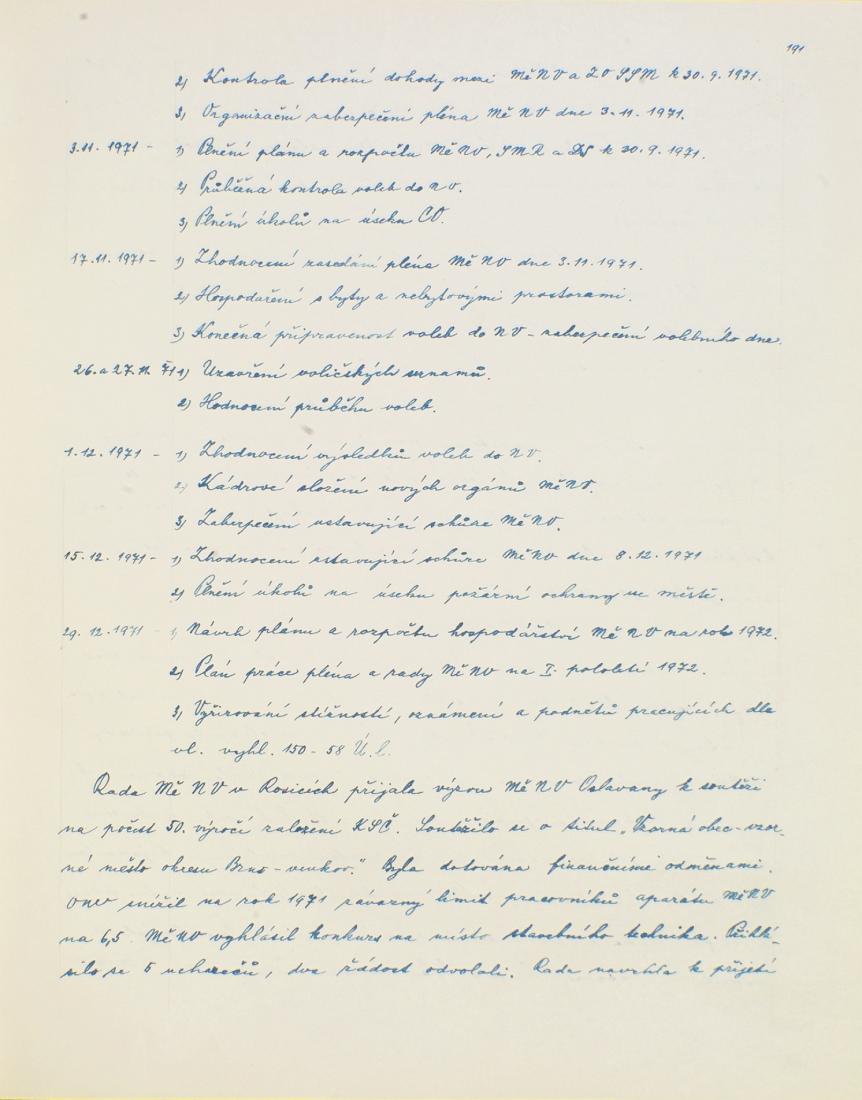 191
2) Kontrola plnění dohody mezi MěNV a ZO SSM k 30. 9. 1971.
3) Organizační zabezpečení pléna MěNV dne 3. 11. 1971.
3. 11. 1971 - 1) Plnění plánu a rozpočtu MěNV, SMR a DS k 30. 9. 1971.
2) Průběžná kontrola voleb do NV.
3) Plnění úkolů na úseku CO.
17. 11. 1971 - 1) Zhodnocení zasedání pléna MěNV dne 3. 11. 1971.
2) Hospodaření s byty a nebytovými prostorami.
3) Konečná připravenost voleb do NV - zabezpečení volebního dne.
26. a 27. 11. 71 1) Uzavření voličských seznamů.
2) Hodnocení průběhu voleb.
1. 12. 1971 - 1) Zhodnocení výsledků voleb do NV.
2) Kádrové složení nových orgánů MěNV.
3) Zabezpečení ustavující schůze MěNV.
15. 12. 1971 - 1) Zhodnocení ustavující schůze MěNV dne 8. 12. 1971
2) Plnění úkolů na úseku požární ochrany ve městě.
29. 12. 1971 - 1) Návrh plánu a rozpočtu hospodářství MěNV na rok 1972.
2) Plán práce pléna a rady MěNV na I. pololetí 1972.
3) Vyřizování stížností, oznámení a podnětů pracujících dle
vl. vyhl. 150 - 58 Ú. l.
Rada MěNV v Rosicích přijala výzvu MěNV Oslavany k soutěži
na počest 50. výročí založení KSČ. Soutěžilo se o titul „Vzorná obec - vzor-
né město okresu Brno - venkov." Byla dotována finančními odměnami.
ONV snížil na rok 1971 závazný limit pracovníků aparátu MěNV
na 6,5. MěNV vyhlásil konkurs na místo stavebního technika. Přihlá-
silo se 5 uchazečů, dva žádost odvolali. Rada navrhla k přijetí